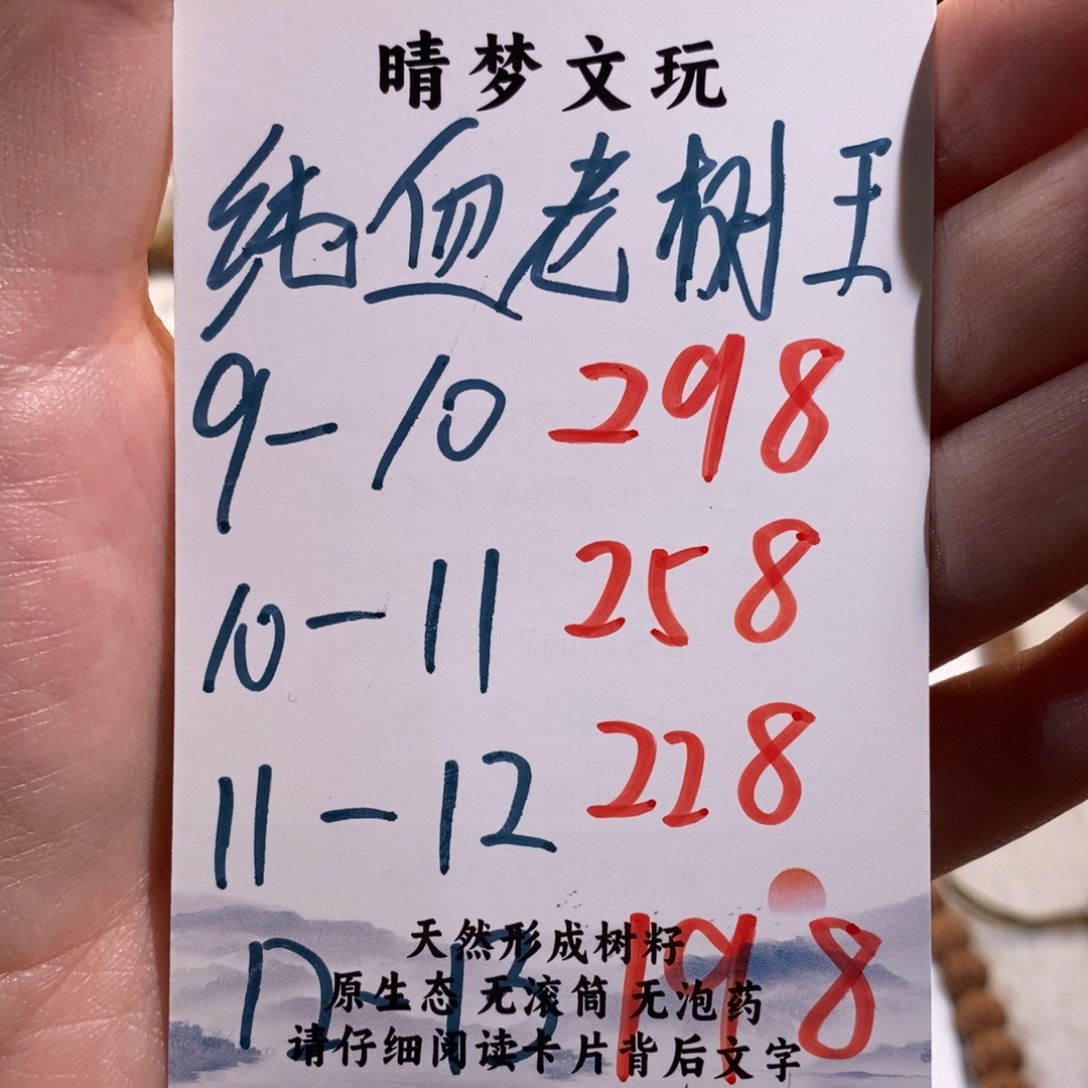 晴梦文玩
纯血老树王
9-10 298
10-11 258
11-12 228
12-13 198
天然形成树籽
原生态 无滚筒 无泡药
请仔细阅读卡片背后文字